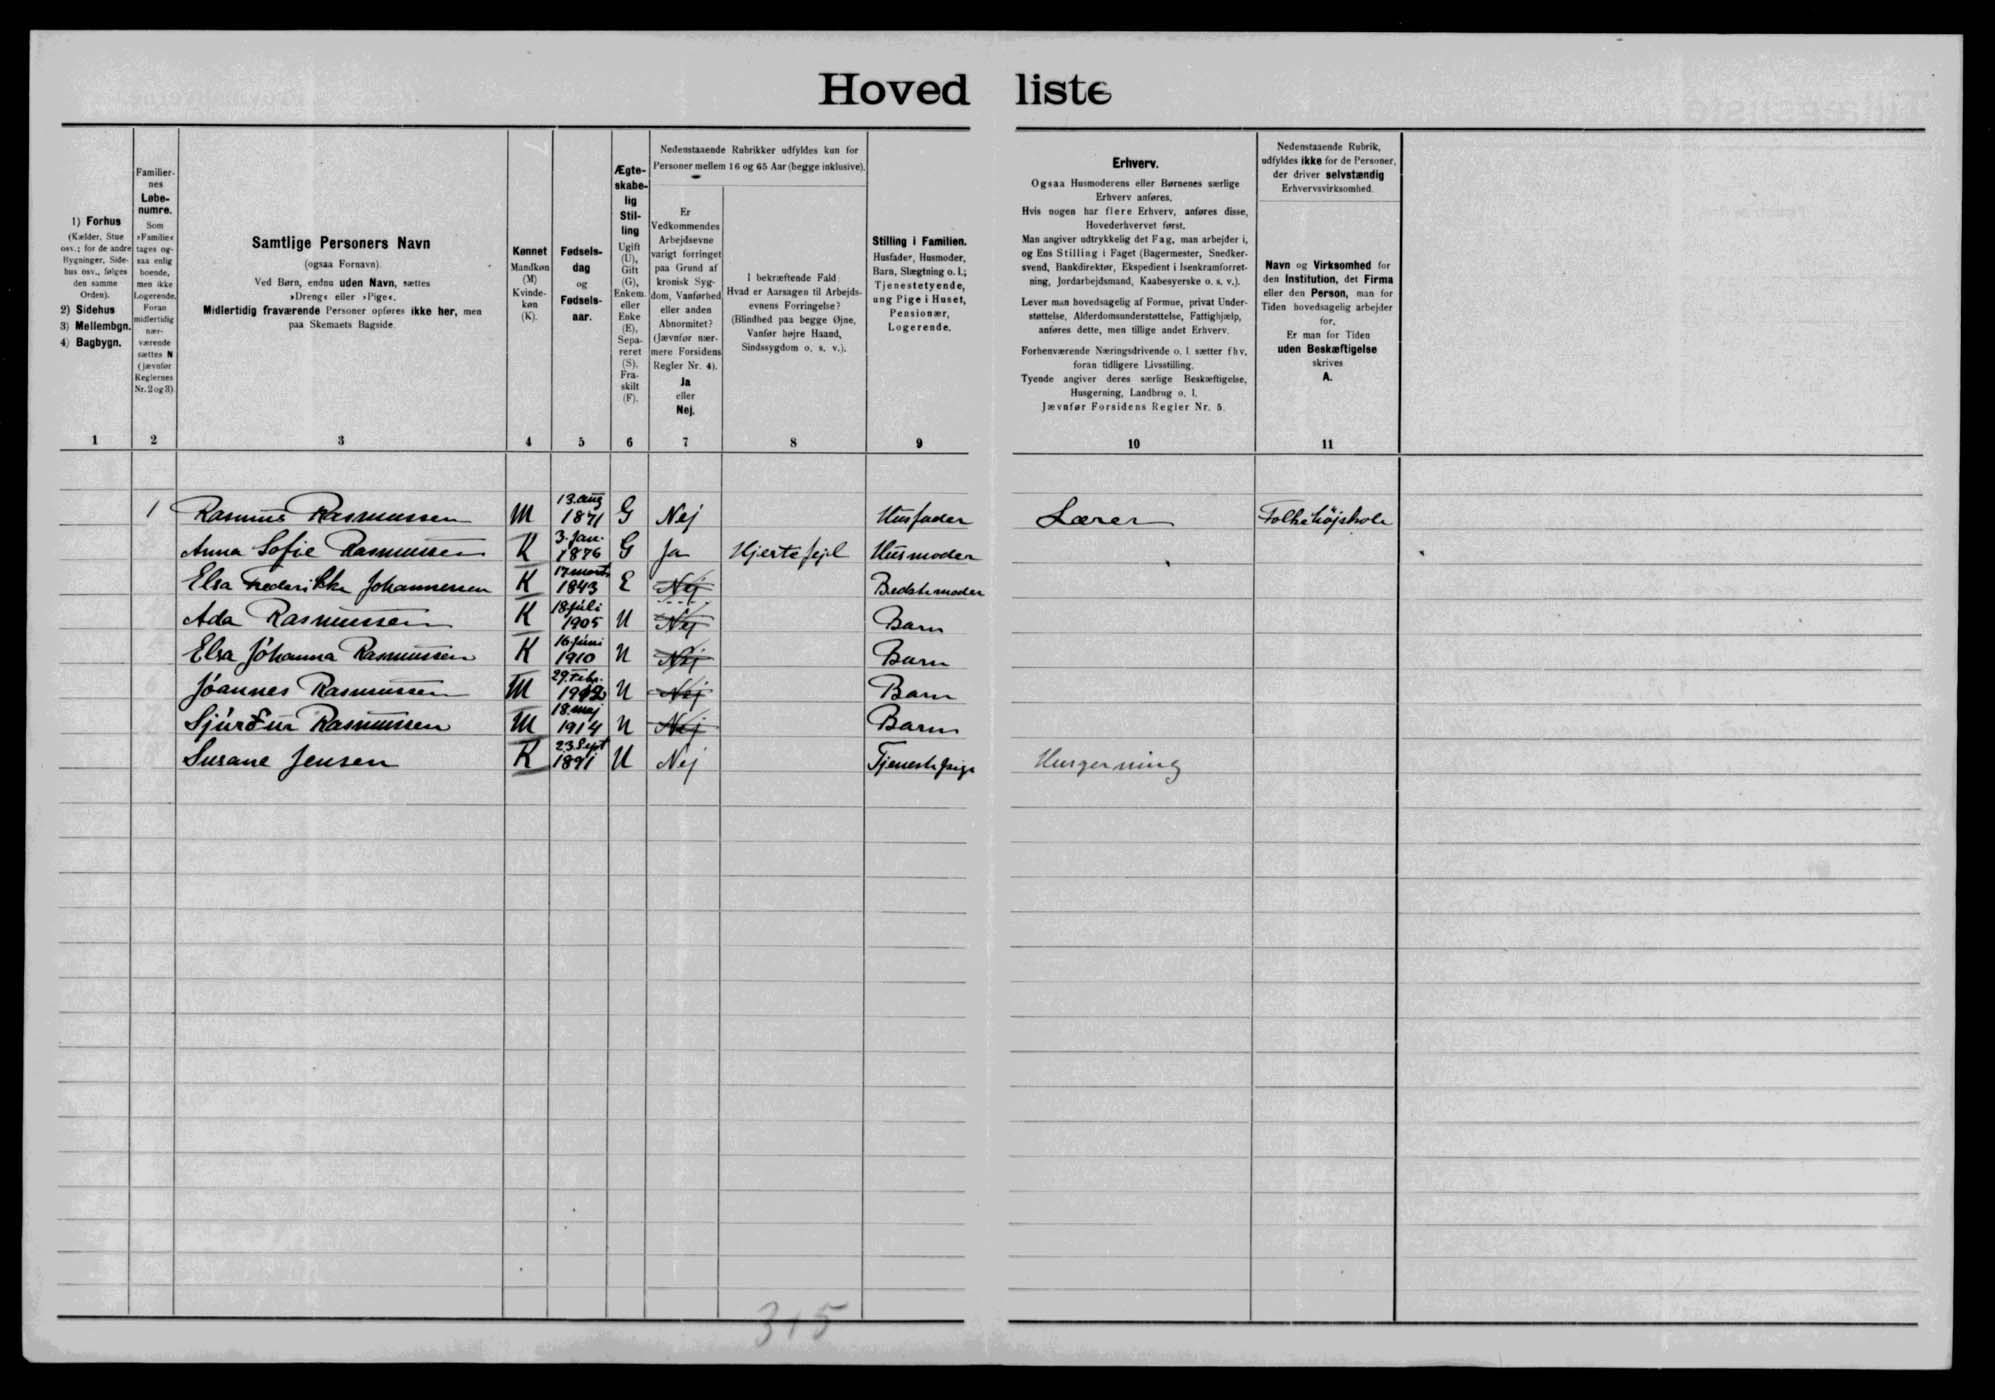 Hovedliste
1) Forhus
(Kælder, Stue
osv.; for de andre
Bygninger, Side-
hus osv., følges
den samme
Orden).
2) Sidehus
3) Mellembgn.
4) Bagbygn.
Familier-
nes
Løbe-
numre.
Som
»Familie«
tages og-
saa enlig
boende,
men ikke
Logerende.
Foran
midlertidig
nær-
værende
sættes N
(jævnfør
Reglernes
Nr. 2 og 3)
Samtlige Personers Navn
(ogsaa Fornavn).
Ved Børn, endnu uden Navn, sættes
»Dreng« eller »Pige«.
Midlertidig fraværende Personer opføres ikke her, men
paa Skemaets Bagside.
Kønnet
Mandkøn
(M)
Kvinde-
køn
(K).
Fødsels-
dag
og
Fødsels-
aar.
Ægte-
skabe-
lig
Stil-
ling
Ugift
(U),
Gift
(G),
Enkem.
eller
Enke
(E),
Sepa-
reret
(S),
Fra-
skilt
(F).
Nedenstaaende Rubrikker udfyldes kun for
Personer mellem 16 og 65 Aar (begge inklusive).
Er
Vedkommendes
Arbejdsevne
varigt forringet
paa Grund af
kronisk Syg-
dom, Vanførhed
eller anden
Abnormitet?
(Jævnfør nær-
mere Forsidens
Regler Nr. 4).
Ja
eller
Nej.
I bekræftende Fald:
Hvad er Aarsagen til Arbejds-
evnens Forringelse?
(Blindhed paa begge Øjne,
Vanfør højre Haand,
Sindssygdom o. s. v.).
Stilling i Familien.
Husfader, Husmoder,
Barn, Slægtning o. l.;
Tjenestetyende,
ung Pige i Huset,
Pensionær,
Logerende.
Erhverv.
Ogsaa Husmoderens eller Børnenes særlige
Erhverv anføres.
Hvis nogen har flere Erhverv, anføres disse,
Hovederhvervet først.
Man angiver udtrykkelig det Fag, man arbejder i,
og Ens Stilling i Faget (Bagermester, Snedker-
svend, Bankdirektør, Ekspedient i Isenkramforret-
ning, Jordarbejdsmand, Kaabesyerske o. s. v.).
Lever man hovedsagelig af Formue, privat Under-
støttelse, Alderdomsunderstøttelse, Fattighjælp,
anføres dette, men tillige andet Erhverv.
Forhenværende Næringsdrivende o. l. sætter fhv.
foran tidligere Livsstilling.
Tyende angiver deres særlige Beskæftigelse,
Husgerning, Landbrug o. l.
Jævnfør Forsidens Regler Nr. 5.
Nedenstaaende Rubrik,
udfyldes ikke for de Personer,
der driver selvstændig
Erhvervsvirksomhed.
Navn og Virksomhed for
den Institution, det Firma
eller den Person, man for
Tiden hovedsagelig arbejder
for.
Er man for Tiden
uden Beskæftigelse
skrives
A.
1 2 3 4 5 6 7 8 9 10 11
1 Rasmus Rasmussen M 13. aug 1871 G Nej Husfader Lærer Folkehöjskole
Anna Sofie Rasmussen K 3. Jan. 1876 G Ja Hjertefejl Husmoder
Elsa Frederikke Johannesen K 17 marts 1843 E Nej Bedstemoder
Ada Rasmussen K 18 Juli 1905 U Nej Barn
Elsa Jóhanna Rasmussen K 16 Juni 1910 U Nej Barn
Jóannes Rasmussen M 29. Febr. 1912 U Nej Barn
Sjúrður Rasmussen M 18. maj 1914 U Nej Barn
Susane Jensen K 23 Sept 1891 U Nej Tjenestepige Husgerning
3+5